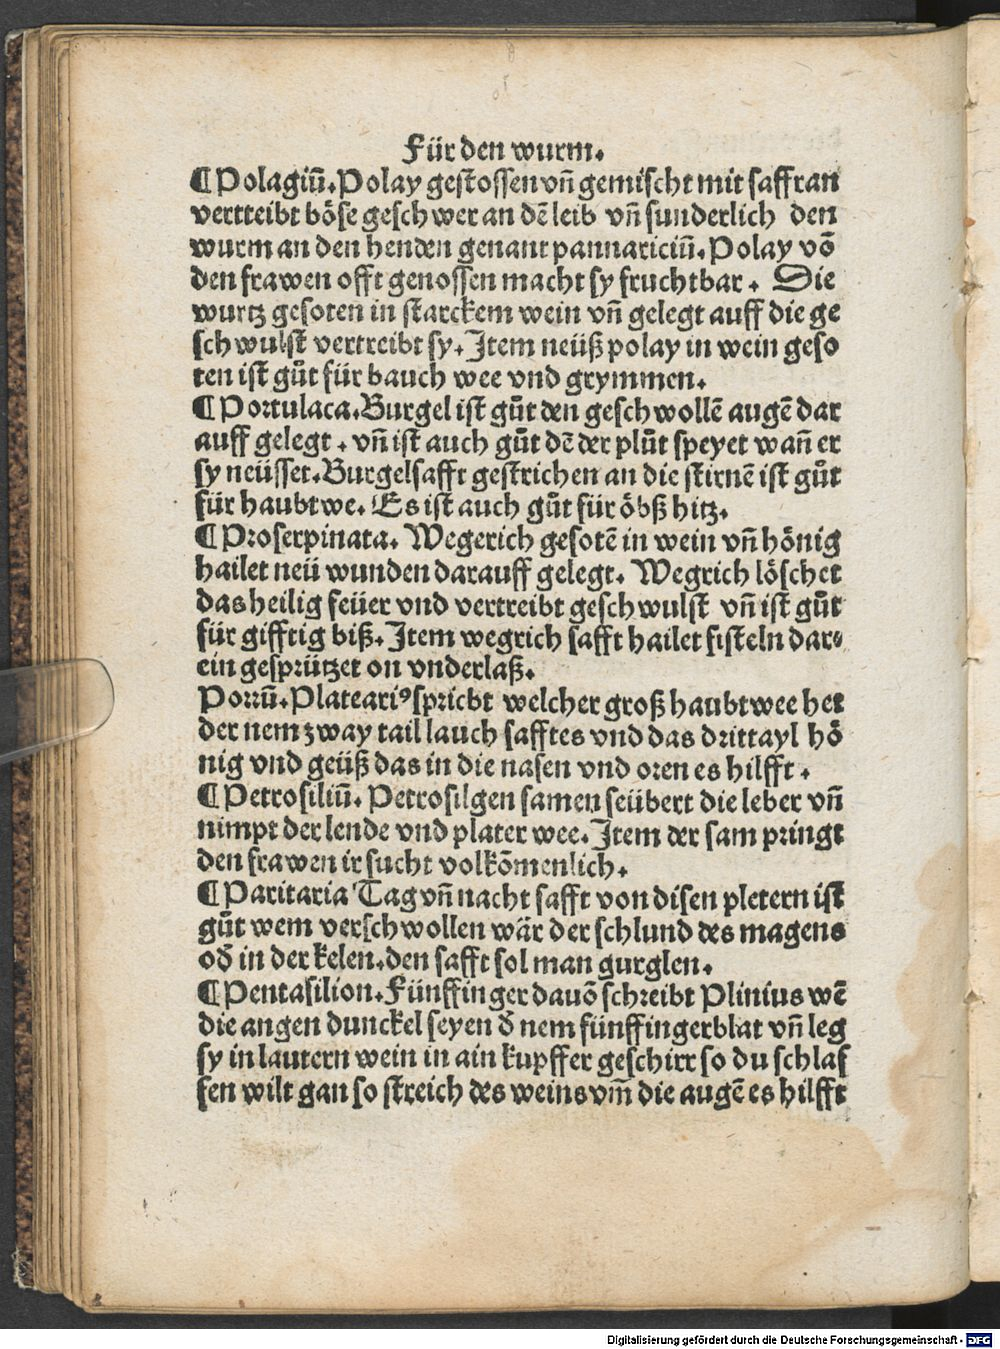 Für den wurm.
¶Polagiū.Polay gestossen vñ gemischt mit saffran
vertreibt böse geschwer an dē leib vñ sunderlich den
wurm an den henden genant pannariciū.Polay vō
den frawen offt genossen macht sy fruchtbar. Die
wurtz gesoten in starckem wein vñ gelegt auff die ge
schwulst vertreibt sy. Item neüß polay in wein geso
ten ist gůt für bauch wee vnd grymmen.
¶Portulaca.Burgel ist gůt den geschwollē augē dar
auff gelegt. vñ ist auch gůt dē der plůt speyet wañ er
sy neüsset.Burgelsafft gestrichen an die stirnē ist gůt
für haubtwe. Es ist auch gůt für öbß hitz.
¶Proserpinata. Wegerich gesotē in wein vñ hönig
hailet neü wunden darauff gelegt. Wegrich löschet
das heilig feüer vnd vertreibt geschwulst vñ ist gůt
für gifftig biß. Item wegrich safft hailet fisteln dar⸗
ein gesprützet on vnderlaß.
Porrū.Plateariꝰ spricht welcher groß haubtwee het
der nem zway tail lauch safftes vnd das drittayl hö
nig vnd geüß das in die nasen vnd oren es hilfft.
¶Petrosiliū. Petrosilgen samen seübert die leber vñ
nimpt der lende vnd plater wee. Item der sam pringt
den frawen ir sucht volkōmenlich.
¶Paritaria Tag vñ nacht safft von disen pletern ist
gůt wem verschwollen wär der schlund des magens
od̄ in der kelen.den safft sol man gurglen.
¶Pentasilion.Fünffinger dauō schreibt Plinius wē
die angen dunckel seyen d̄ nem fünffingerblat vñ leg
sy in lautern wein in ain kupffer geschirr so du schlaf
fen wilt gan so streich des weins vm̄ die augē es hilfft
Digitalisierung gefördert durch die Deutsche Forschungsgemeinschaft - DFG